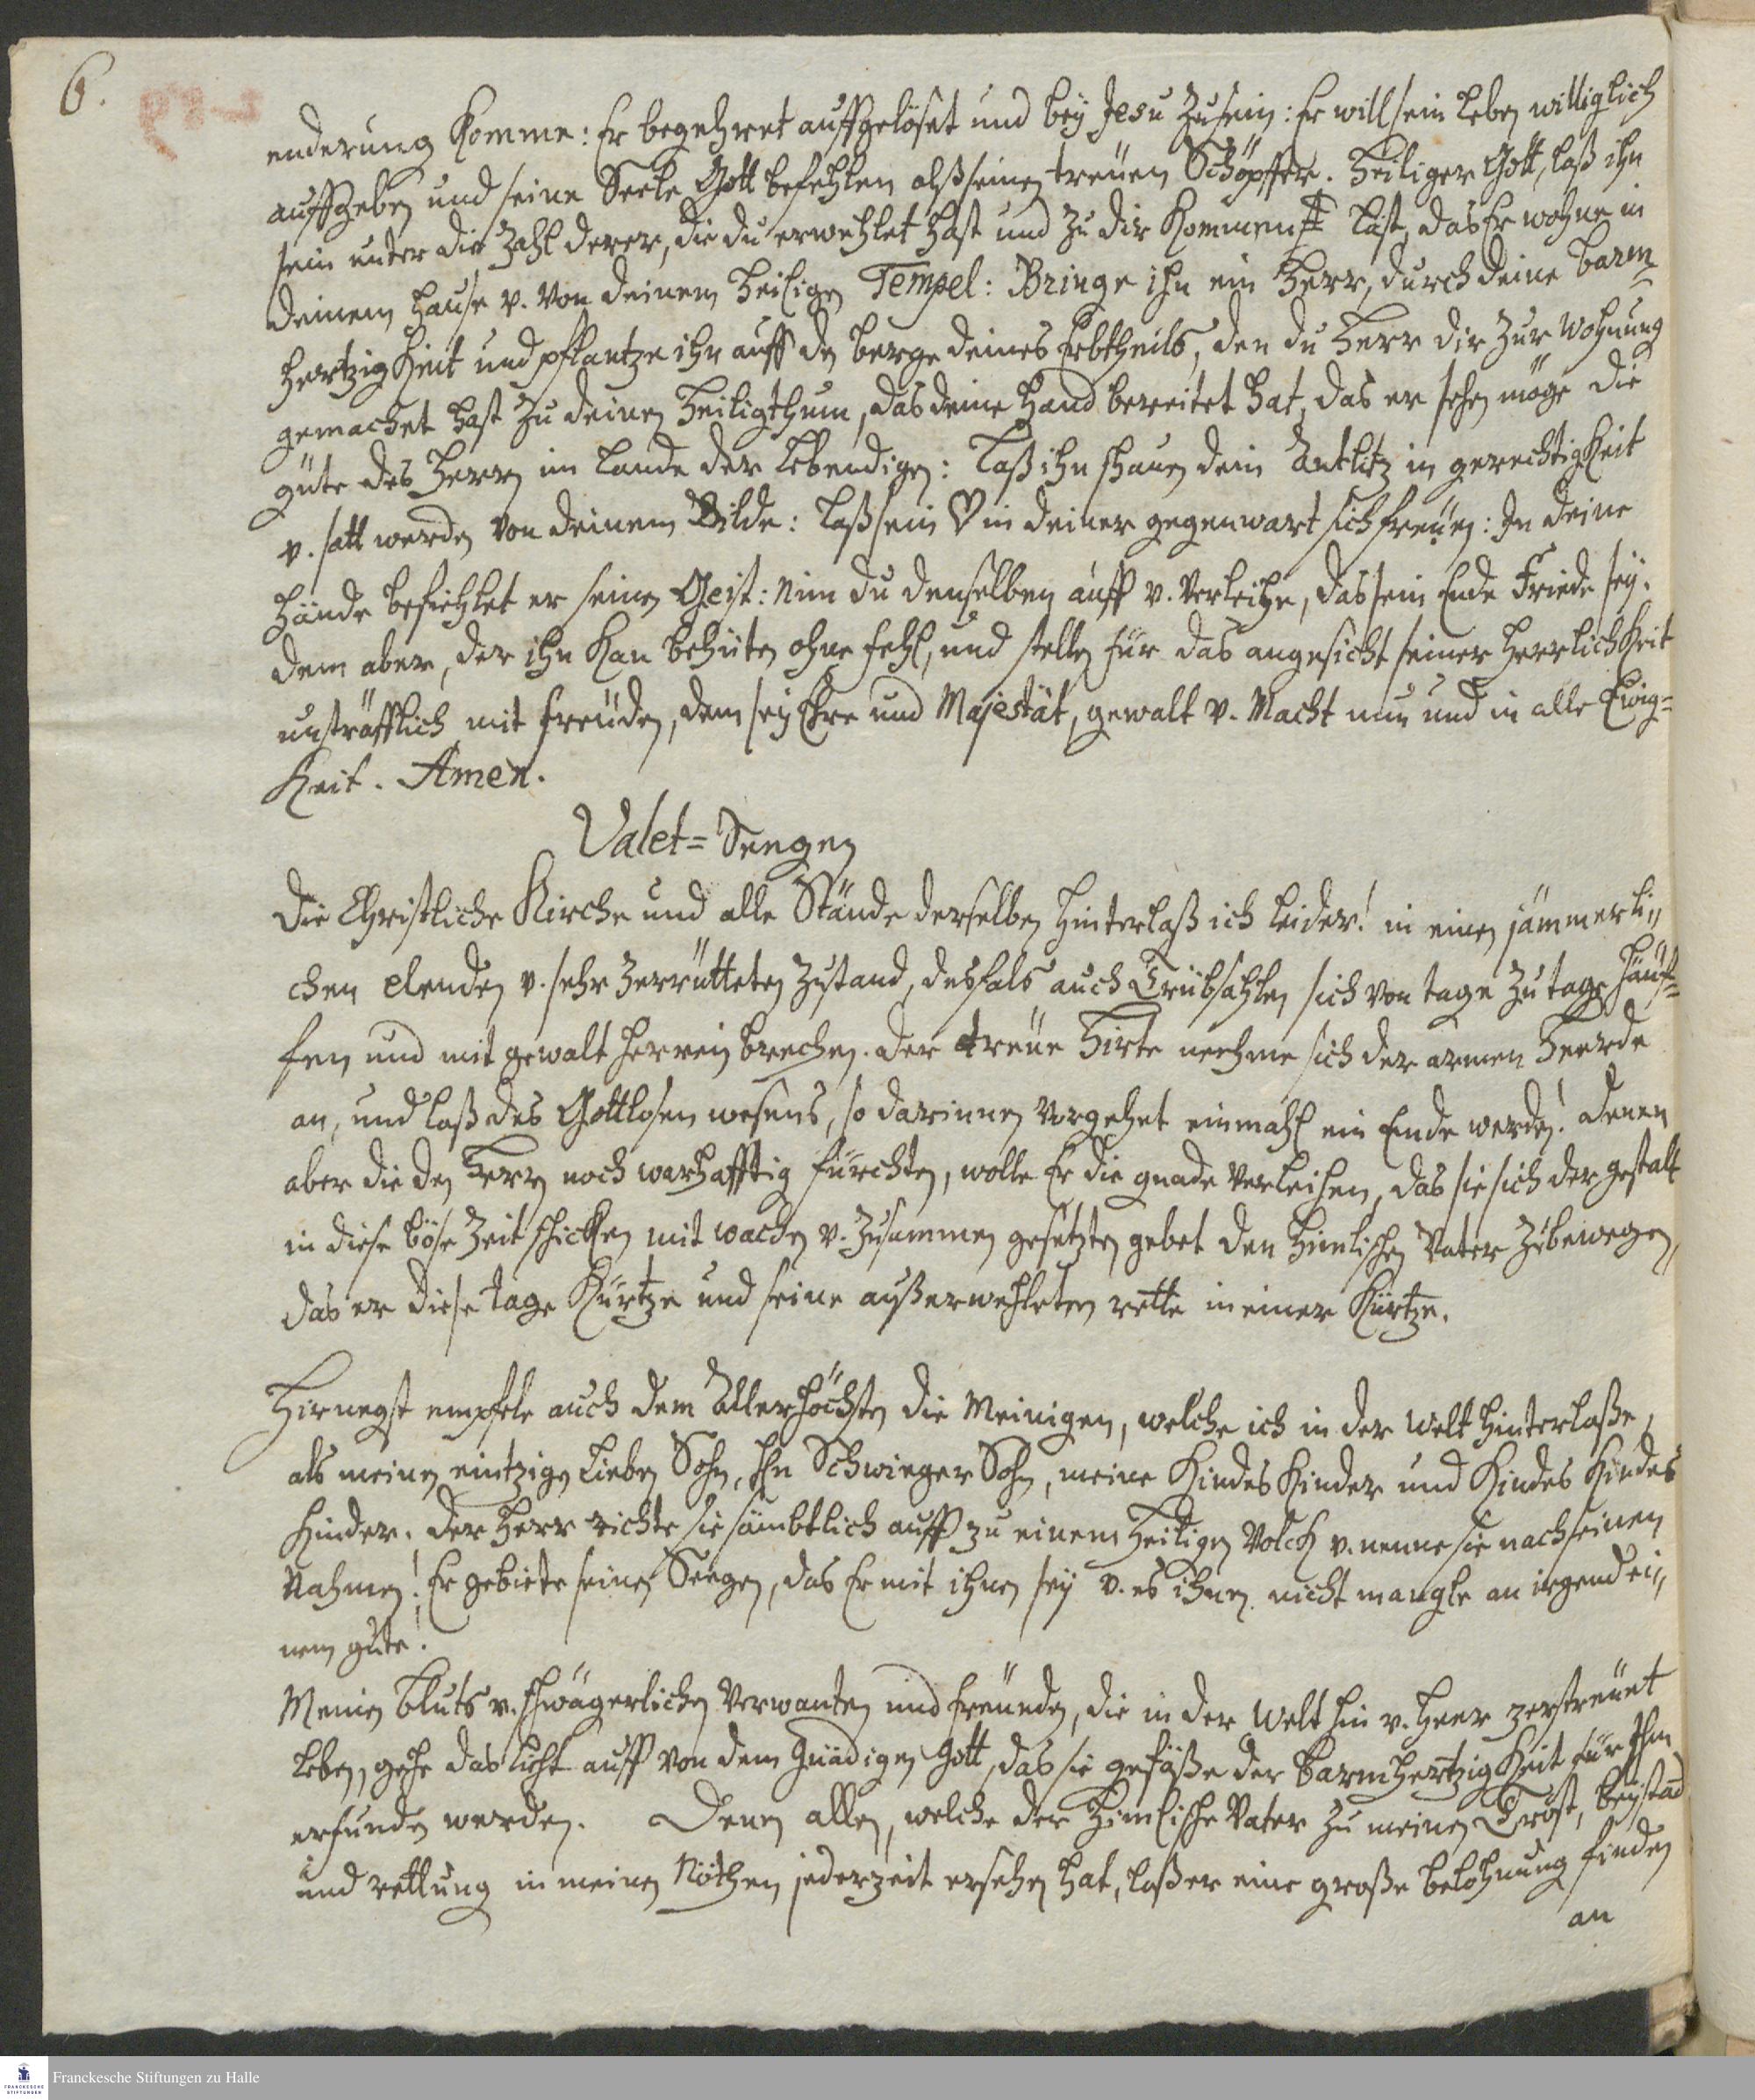 6.
enderung komme: Er begehret auffgelöset und bey Jesu zusein: Er will sein leben williglich
auffgeben und seine Seele Gott befehlen alß seinen treüen Schöpffer. Heiliger Gott, laß ihn
sein unter die zahl derer, die du erwehlet hast und zu dir kommen läst, das Er wohne in
deinem hause v. von deinem heiligen Tempel: Bringe ihn ein Herr, durch deine barm=
hertzigkeit und pflantze ihn auff den berge deines Erbtheils, den du Herr dir zur wohnung
gemachet hast zu deinen Heiligthum, das deine hand bereitet hat, das er sehen möge die
güte des Herren im lande der lebendigen: laß ihn schauen dein Antlitz in gerechtigkeit
v. satt werden von deinem Bilde: laß sein ♡ in deiner gegenwart sich freüen: In deine
hände befiehlet er seinen Geist: Nim du denselben auff v. verleihe, das sein Ende Friede sey.
dem aber, der ihn kan behüten ohne fehl, und stellen für das angesicht seiner herrlichkeit
unsträfflich mit freüden, dem sey Ehre und Majestät, gewalt v. Macht nun und in alle Ewig=
keit. Amen.
Valet=Seegen
Die Christliche Kirche und alle Stände derselben hinterlaß ich leider! in einen jämmerli=
chen elenden v. sehr zerrütteten zustand, desfals auch Trübsahlen sich von tage zu tage häuf=
fen und mit gewalt herrein brechen. der treüe Hirte nehme sich der armen Heerde
an, und laß des Gottlosen wesens, so darinnen vorgehet einmahl ein Ende werden! denen
aber die den Herrn noch warhafftig fürchten, wolle Er die gnade verleihen, das sie sich der gestalt
in diese böse zeit schicken mit wachen v. zusammen gesetzten gebet den himlischen Vater zubewegen,
das er diese tage kürtze und seine außerwehleten rette in einer kürtze.
Hienegst empfele auch dem Allerhöchsten die Meinigen, welche ich in der welt hinterlaße,
als meinen eintzigen lieben Sohn, Hn Schwieger Sohn, meine Kindes Kinder und Kindes Kindes
Kinder. der Herr richte sie sämbtlich auff zu einem heiligen Volck v. nenne sie nach seinen
Nahmen! Er gebiete seinen Seegen, das Er mit ihnen sey v. es ihnen nicht mangle an irgend ei=
nem gute!
Meinen bluts v. schwägerlichen verwanten und freünden, die in der welt hin v. heer zerstreüet
leben, gehe das licht auff von dem gnädigen Gott, das sie gefäße der barmhertzigkeit für Ihm
erfunden werden. Denen allen, welche der himlische Vater zu meinen Trost, beystand
und rettung in meinen Nöthen jederzeit ersehen hat, laß er eine große belohnung finden
an
Franckesche Stiftungen zu Halle